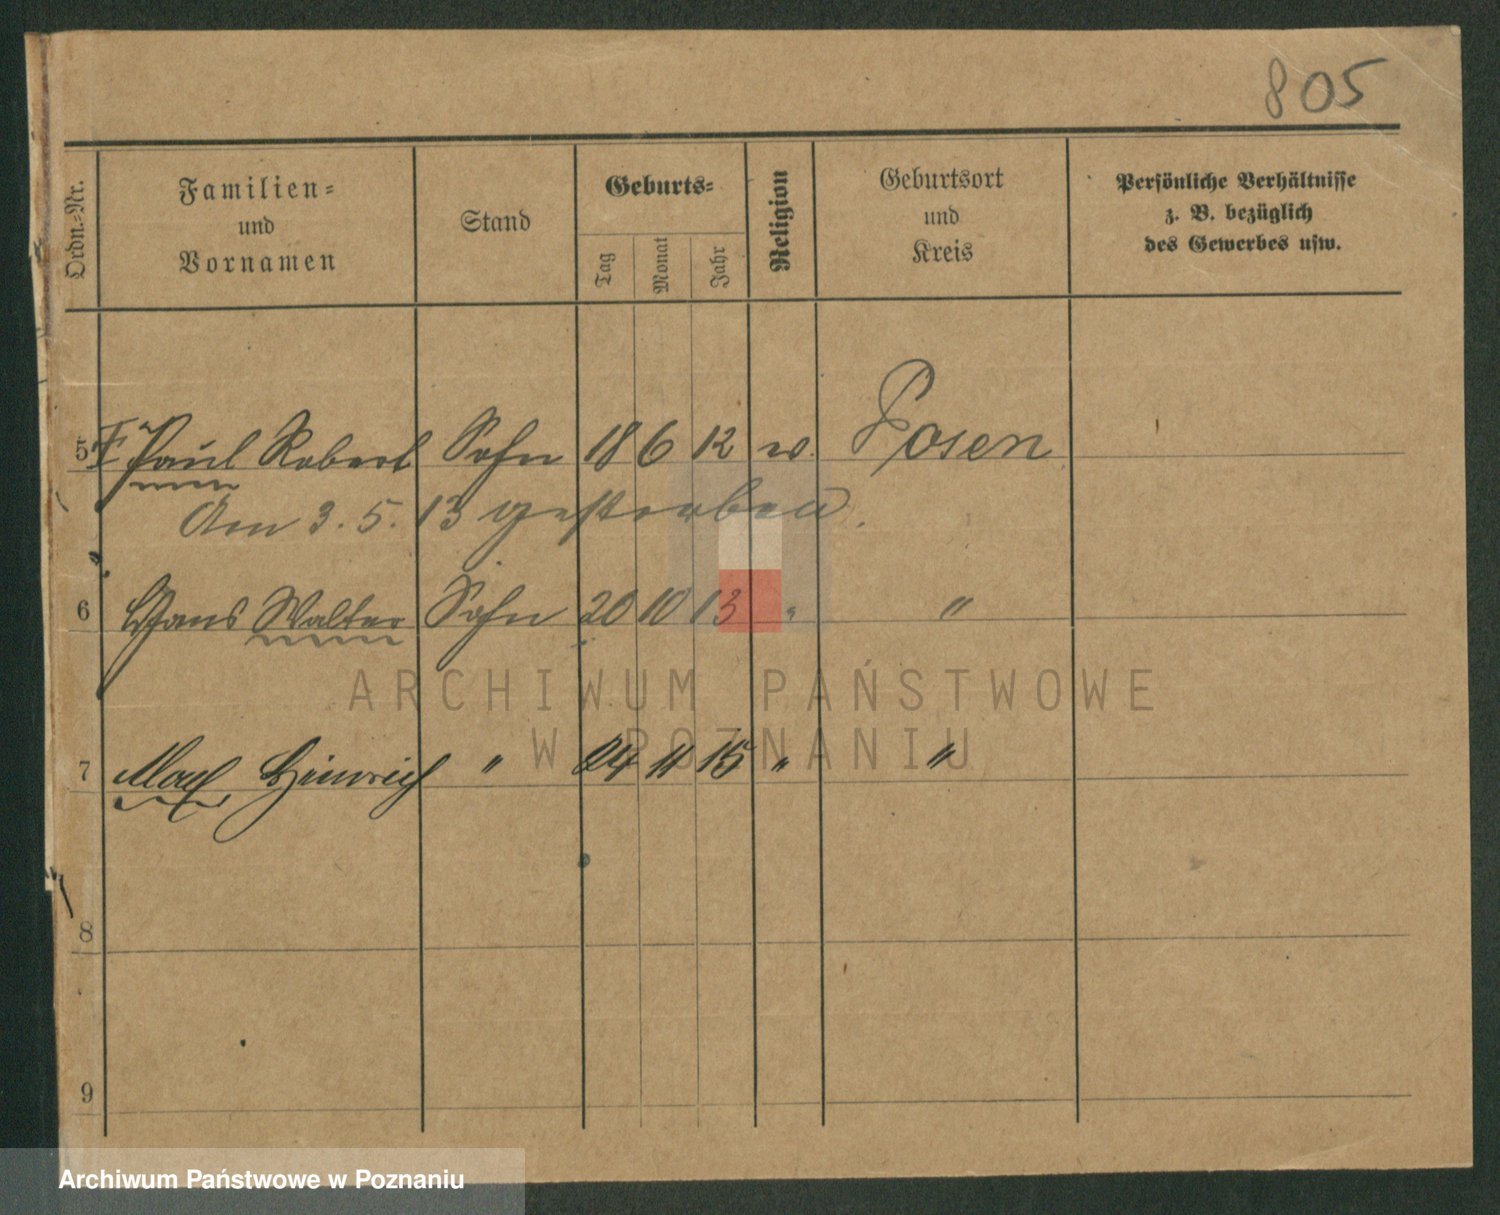 805
Ordn.-Nr. Familien- und Vornamen Stand Geburts- Tag Monat Jahr Religion Geburtsort und Kreis Persönliche Verhältnisse z. B. bezüglich des Gewerbes usw.
5 Paul Robert Sohn 18 6 12 Posen
Am 3. 5. 13 gestorben.
6 Hans Walter Sohn 20 10 13 " "
ARCHIWUM PAŃSTWOWE
W POZNANIU
7 Max Heinrich " 24 11 15 " "
8
9
Archiwum Państwowe w Poznaniu